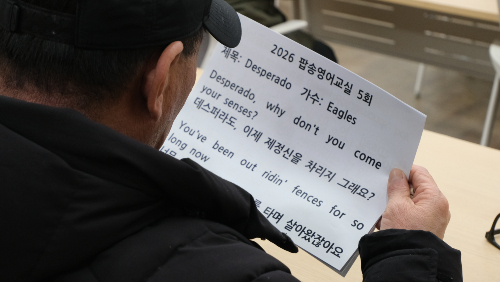 2026 팝송영어교실 5회
제목: Desperado 가수: Eagles
Desperado, why don't you come
your senses?
데스퍼라도, 이제 제정신을 차리지 그래요?
You've been out ridin' fences for so
long now
타며 살아왔잖아요